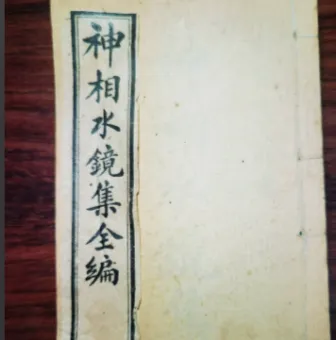 神相水鏡集全編